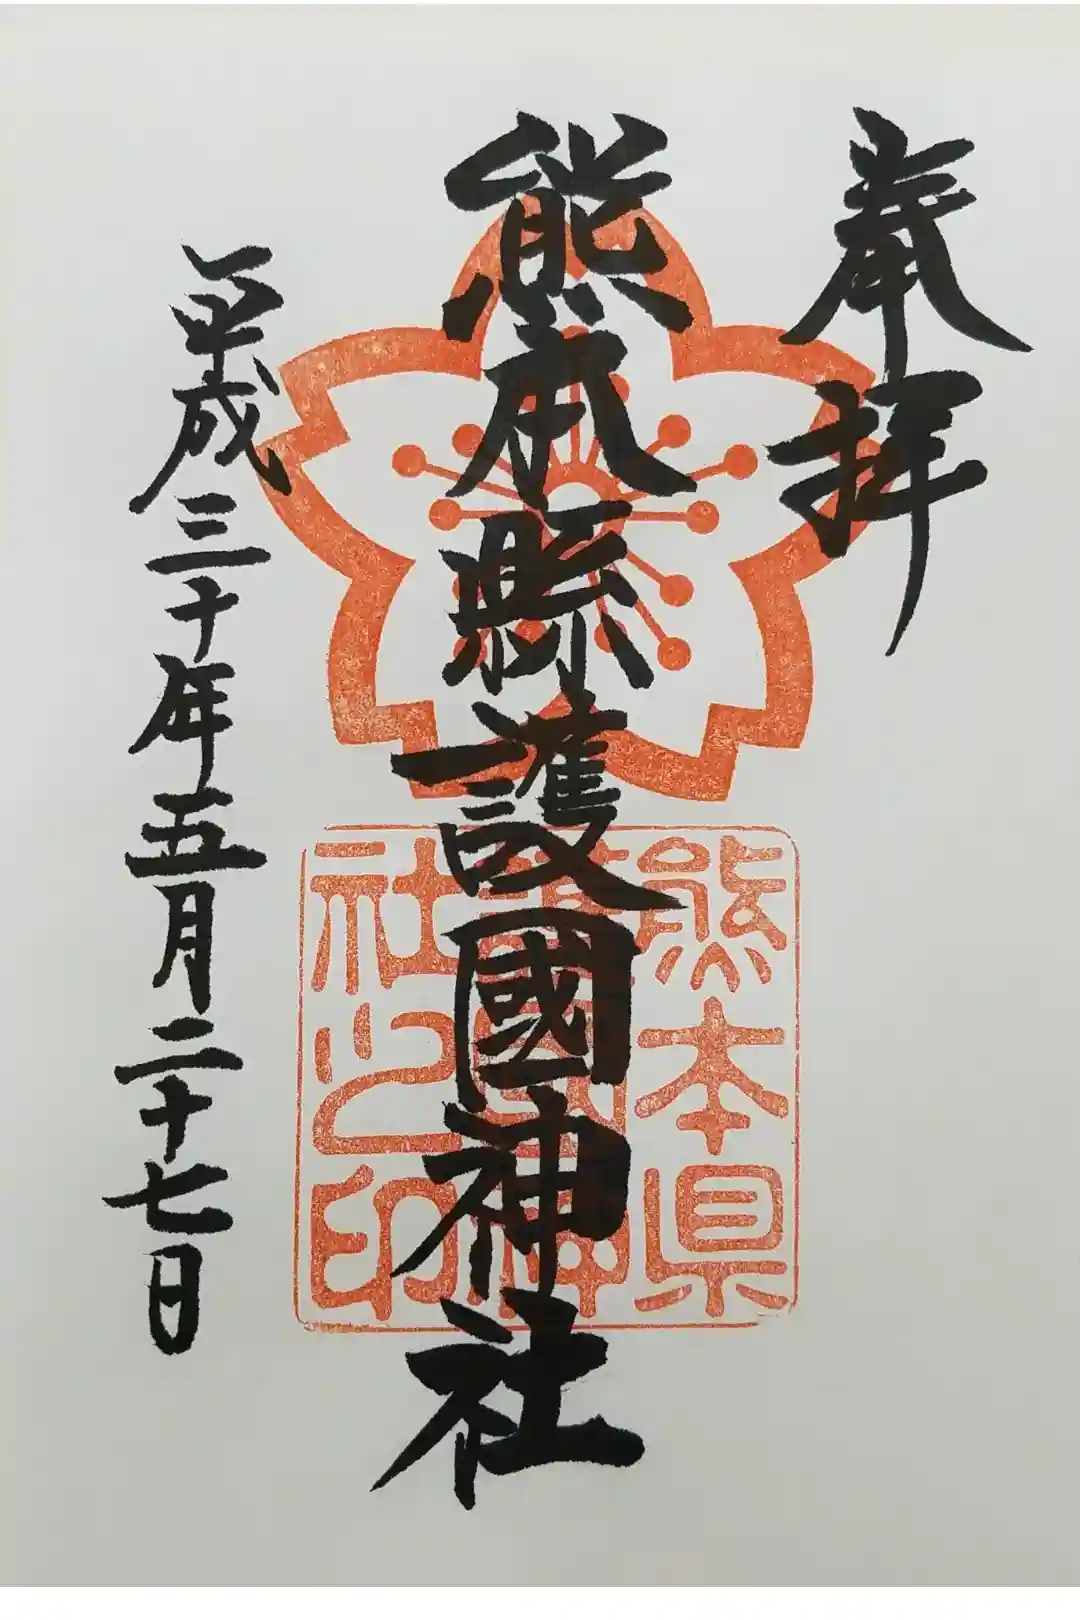 奉拝
熊本縣護國神社
熊本県
護國神
社之印
平成三十年五月二十七日